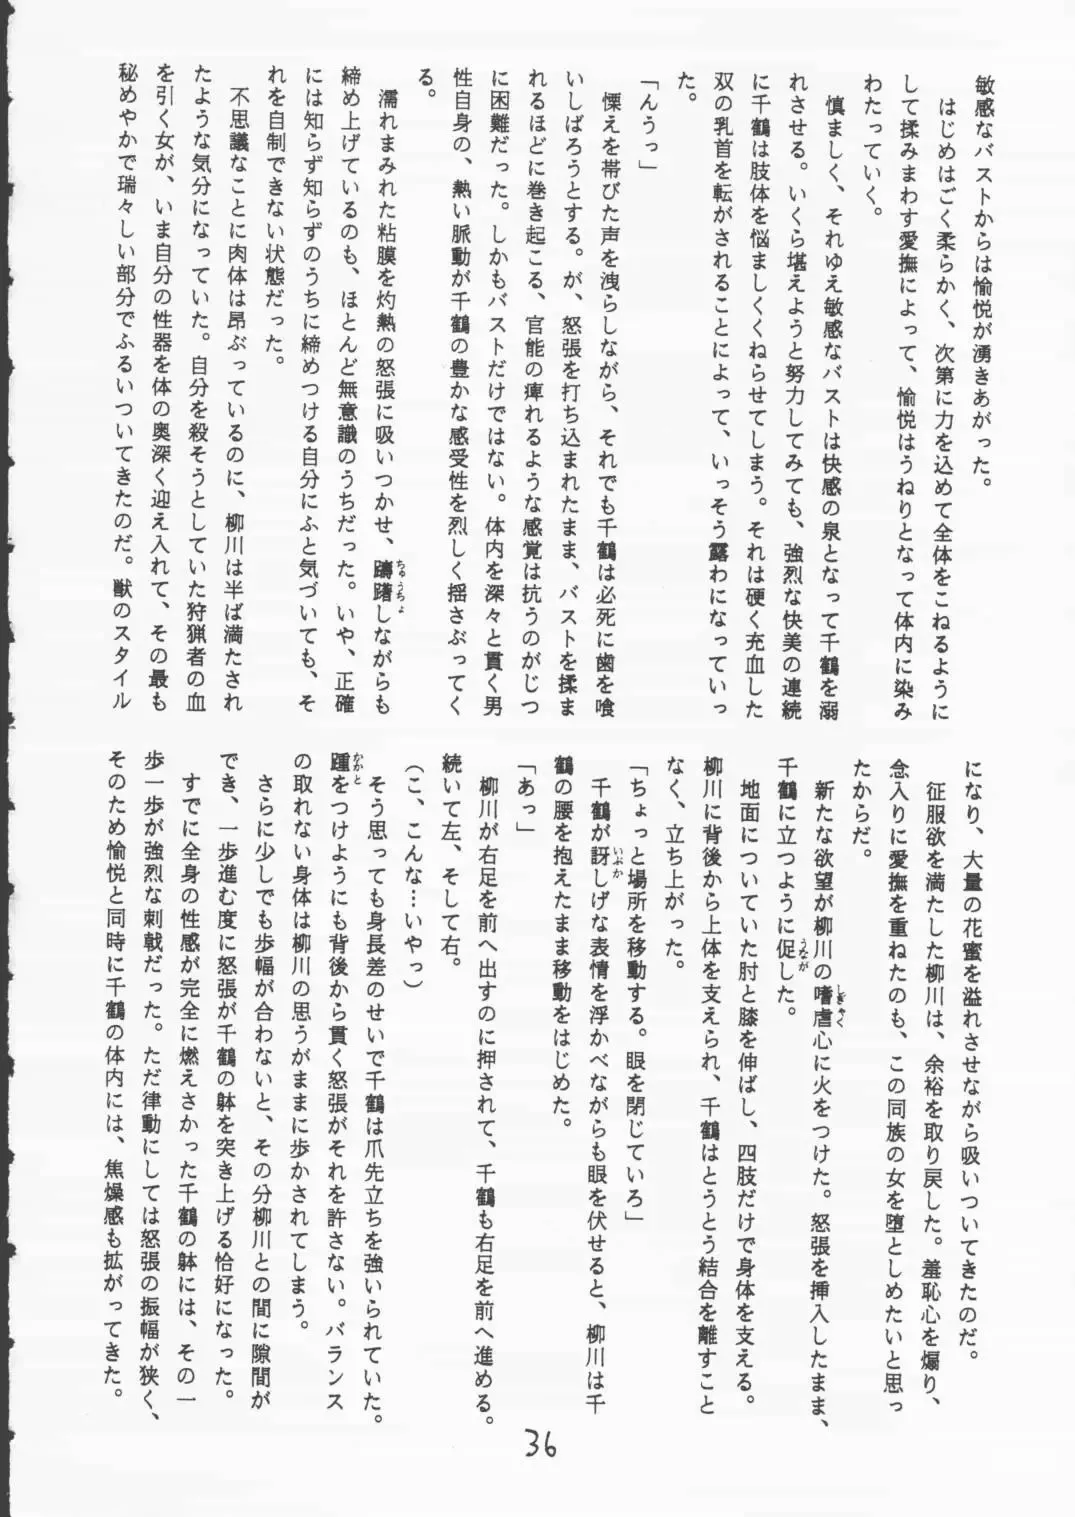 敏感なバストからは愉悦が湧きあがった。
はじめはごく柔らかく、次第に力を込めて全体をこねるように
して揉みまわす愛撫によって、愉悦はうねりとなって体内に染み
わたっていく。
慎ましく、それゆえ敏感なバストは快感の泉となって千鶴を溺
れさせる。いくら堪えようと努力してみても、強烈な快美の連続
に千鶴は肢体を悩ましくくねらせてしまう。それは硬く充血した
双の乳首を転がされることによって、いっそう露わになっていっ
た。
「んうっ」
慄えを帯びた声を洩らしながら、それでも千鶴は必死に歯を喰
いしばろうとする。が、怒張を打ち込まれたまま、バストを揉ま
れるほどに巻き起こる、官能の痺れるような感覚は抗うのがじつ
に困難だった。しかもバストだけではない。体内を深々と貫く男
性自身の、熱い脈動が千鶴の豊かな感受性を烈しく揺さぶってく
る。
濡れまみれた粘膜を灼熱の怒張に吸いつかせ、躊躇しながらも
締め上げているのも、ほとんど無意識のうちだった。いや、正確
には知らず知らずのうちに締めつける自分にふと気づいても、そ
れを自制できない状態だった。
不思議なことに肉体は昂ぶっているのに、柳川は半ば満たされ
たような気分になっていた。自分を殺そうとしていた狩猟者の血
を引く女が、いま自分の性器を体の奥深く迎え入れて、その最も
秘めやかで瑞々しい部分でふるいついてきたのだ。獣のスタイル
になり、大量の花蜜を溢れさせながら吸いついてきたのだ。
征服欲を満たした柳川は、余裕を取り戻した。羞恥心を煽り、
念入りに愛撫を重ねたのも、この同族の女を堕としめたいと思っ
たからだ。
新たな欲望が柳川の嗜虐心に火をつけた。怒張を挿入したまま、
千鶴に立つように促した。
地面についていた肘と膝を伸ばし、四肢だけで身体を支える。
柳川に背後から上体を支えられ、千鶴はとうとう結合を離すこと
なく、立ち上がった。
「ちょっと場所を移動する。眼を閉じていろ」
千鶴が訝しげな表情を浮かべながらも眼を伏せると、柳川は千
鶴の腰を抱えたまま移動をはじめた。
「あっ」
柳川が右足を前へ出すのに押されて、千鶴も右足を前へ進める。
続いて左、そして右。
（こ、こんな…いやっ）
そう思っても身長差のせいで千鶴は爪先立ちを強いられていた。
踵をつけようにも背後から貫く怒張がそれを許さない。バランス
の取れない身体は柳川の思うがままに歩かされてしまう。
さらに少しでも歩幅が合わないと、その分柳川との間に隙間が
でき、一歩進む度に怒張が千鶴の躰を突き上げる恰好になった。
すでに全身の性感が完全に燃えさかった千鶴の躰には、その一
歩一歩が強烈な刺戟だった。ただ律動にしては怒張の振幅が狭く、
そのため愉悦と同時に千鶴の体内には、焦燥感も拡がってきた。
36